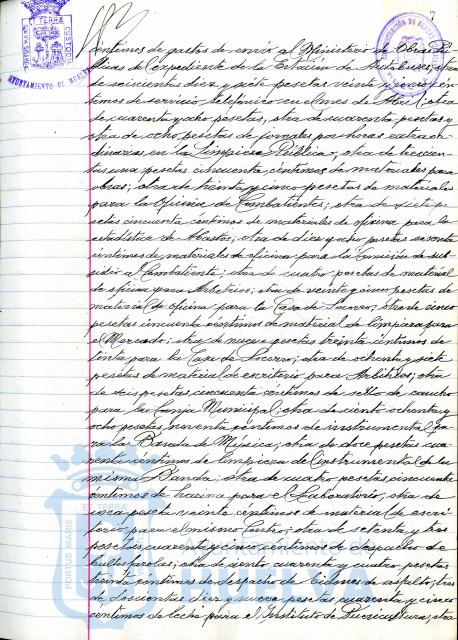 7
PORTUS MARIS ET TERRAE CUSTODIA
AYUNTAMIENTO DE HUELVA
centimos de gastos de envio al Ministerio de Obras Pu-
blicas del expediente de la Estación de Autobuses; otra
de seiscientas diez y siete pesetas veinte y cinco cén-
timos de servicio telefonico en el mes de Abril; otra
de cuarenta y ocho pesetas, otra de cuarenta pesetas y
otra de ocho pesetas de jornales por horas extraor-
dinarias en la Limpieza Pública; otra de trescien-
tas una pesetas cincuenta céntimos de materiales para
obras; otra de treinta y cinco pesetas de materiales
para la Oficina de Combatientes; otra de siete pe-
setas cincuenta céntimos de materiales de oficina para la
estadística de Abastos; otra de diez y ocho pesetas sesenta
céntimos de materiales de oficina para la Comisión de sub-
sidio al Combatiente; otra de cuatro pesetas de material
de oficina para Arbitrios; otra de veinte y cinco pesetas de
material de oficina para la Casa de Socorro; otra de cinco
pesetas cincuenta céntimos de material de limpieza para
el Mercado; otra de nueve pesetas treinta céntimos de
tinta para la Casa de Socorro; otra de ochenta y siete
pesetas de material de escritorio para Arbitrios; otra
de seis pesetas cincuenta céntimos de sello de caucho
para la Granja Municipal; otra de ciento ochenta y
ocho pesetas noventa céntimos de instrumental pa-
ra la Banda de Música; otra de doce pesetas cua-
renta céntimos de limpieza del instrumental de la
misma Banda; otra de cuatro pesetas cincuenta
céntimos de harina para el Laboratorio; otra de
una peseta veinte céntimos de material de escri-
torio para el mismo Centro; otra de setenta y tres
pesetas cuarenta y cinco céntimos de despacho de
bultos; otra de ciento cuarenta y cuatro pesetas
treinta céntimos de despacho de bidones de asfalto; otra
de doscientas diez y nueve pesetas cuarenta y cinco
céntimos de leche para el Instituto de Puericultura; otra
PORTUS MARIS
Ayuntamiento de
HUELVA